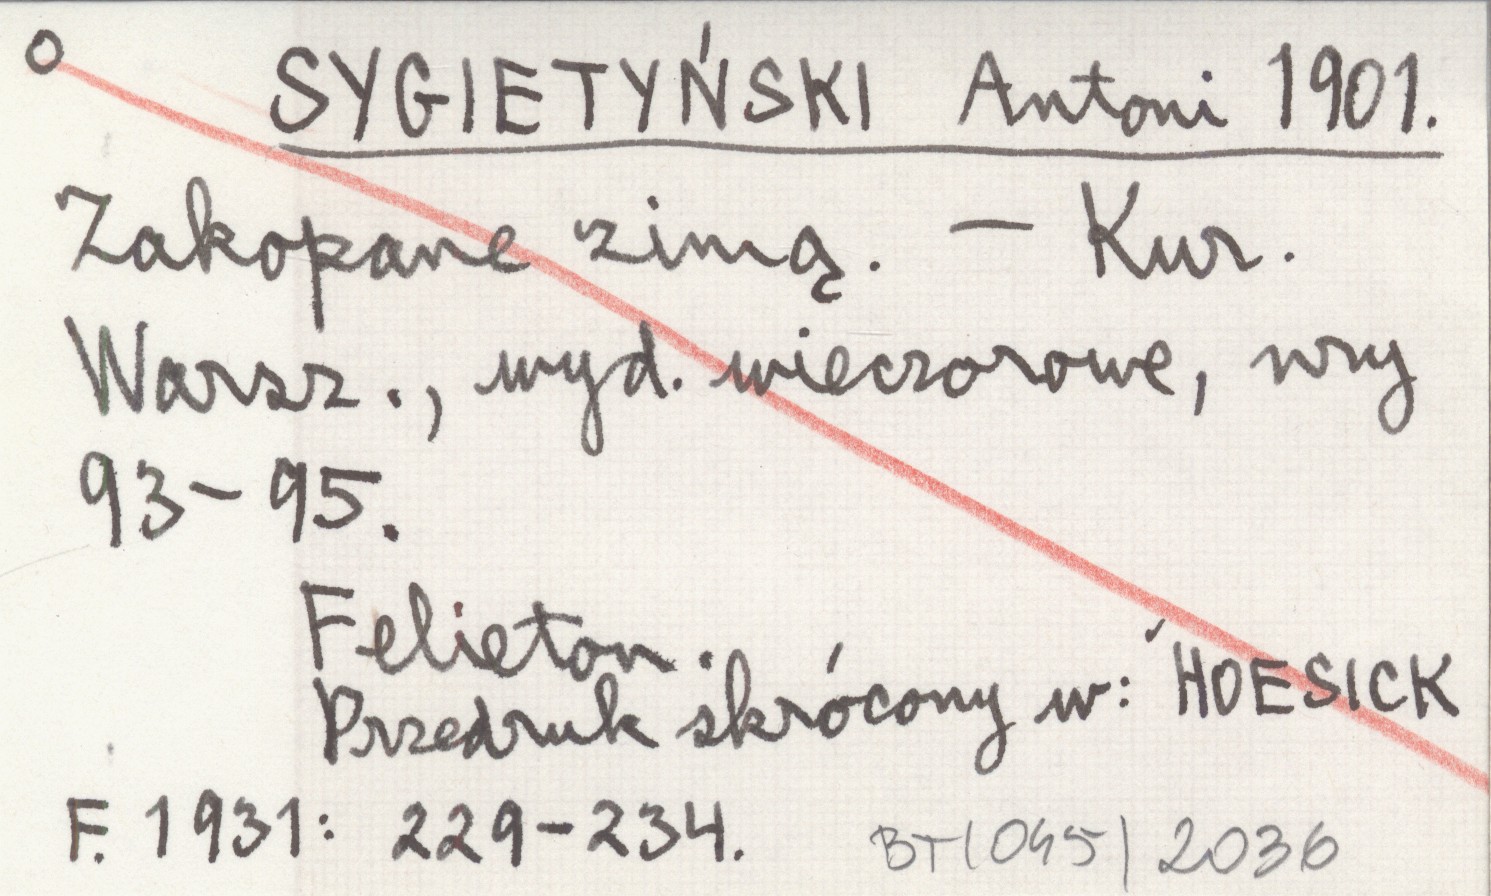 O SYGIETYŃSKI Antoni 1901.
Zakopane zimą. — Kur.
Warsz., wyd. wieczorowe, nry
93-95.
Felieton.
Przedruk skrócony w: HOESICK
F. 1931: 229-234.
BT(045) 2036